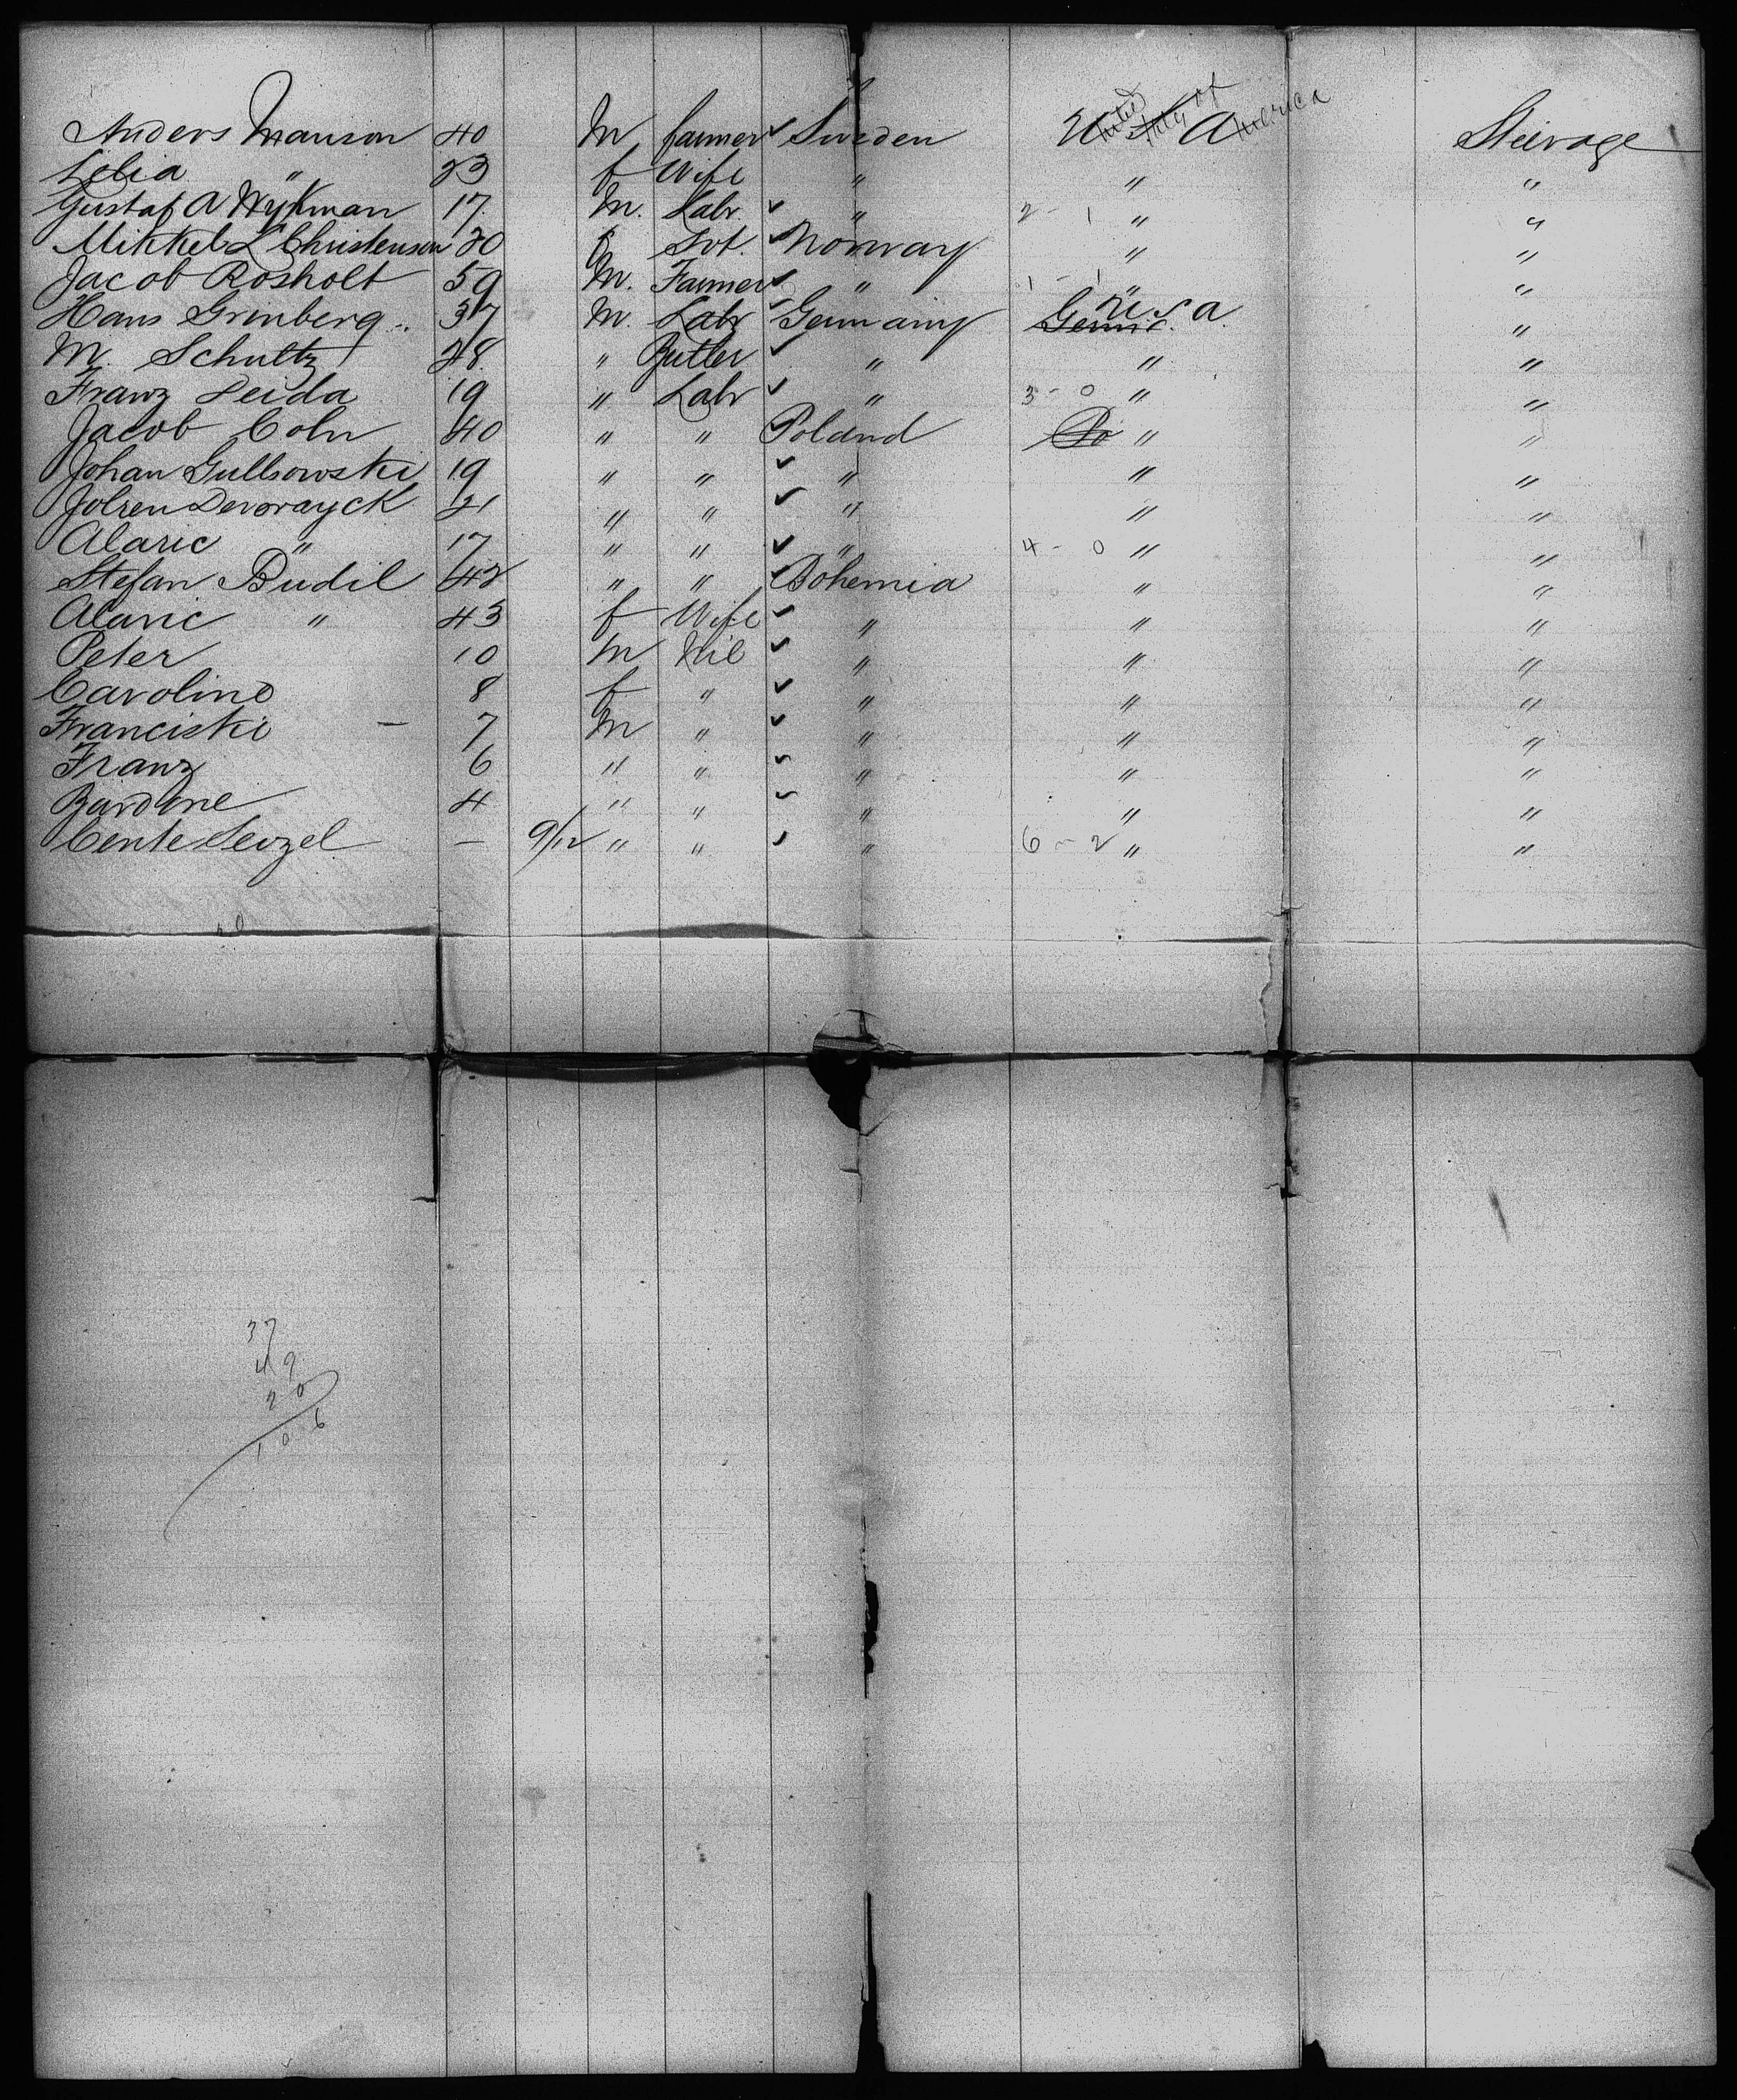 Anders Manson 40 M farmer Sweden U S A United States of America Steerage
Lilia " 23 f Wife " " "
Gustaf A Wykman 17 M. Labr. " 2 - 1 " "
Mikkel L Christensen 20 f Svt. Norway " "
Jacob Rosholt 59 M. Farmer " 1 - 1 " "
Hans Grinberg 37 M. Labr Germany U.S.a. "
M. Schultz 28 " Butler " " "
Franz Leida 19 " Labr " 3 - 0 " "
Jacob Cohn 40 " " Poland Po " "
Johan Gullsowski 19 " " " " "
Devorayck 21 " " " " "
Alaric " 17 " " " 4 - 0 " "
Stefan Budil 42 " " Bohemia " "
Alaric " 43 f Wife " " "
Peter 10 M Nil " " "
Caroline 8 f " " " "
Franciski - 7 M " " " "
Franz 6 " " " " "
4 " " " " "
— 9/12 " " " 6 - 2 " "
37
49
20
106